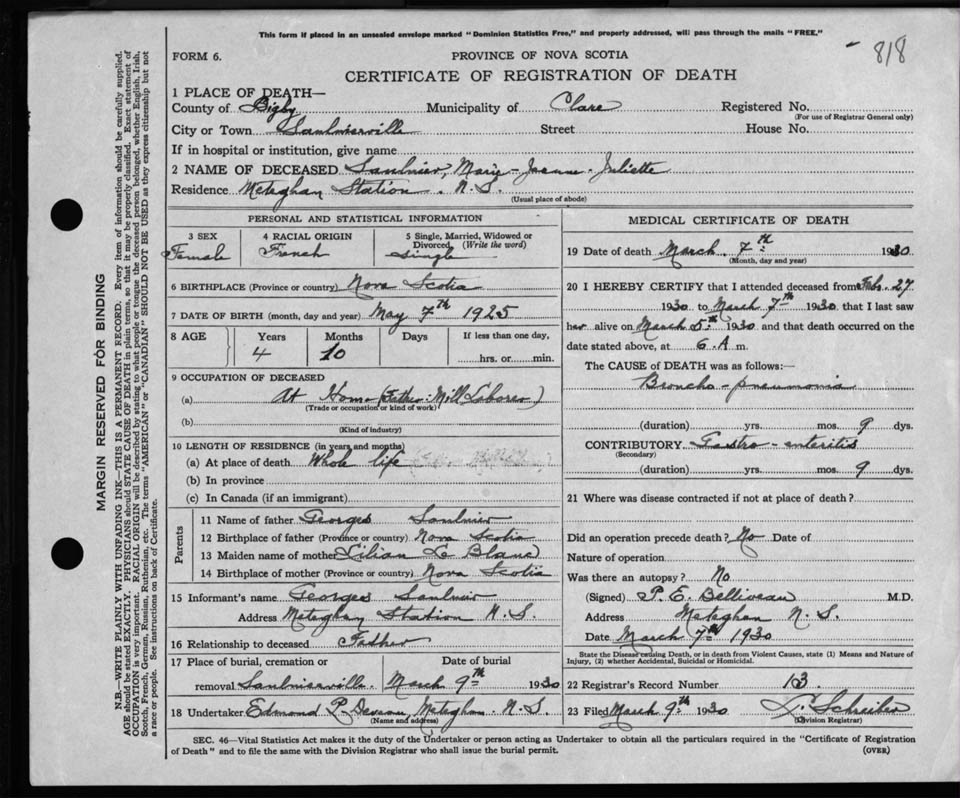 This form if placed in an unsealed envelope marked "Dominion Statistics Free," and properly addressed, will pass through the mails "FREE."
818
FORM 6.
PROVINCE OF NOVA SCOTIA
CERTIFICATE OF REGISTRATION OF DEATH
1 PLACE OF DEATH—
County of Digby Municipality of Clare Registered No.
(For use of Registrar General only)
City or Town Saulnierville Street House No.
If in hospital or institution, give name
2 NAME OF DECEASED Saulnier, Marie-Jeanne-Juliette
Residence Meteghan Station. N.S.
(Usual place of abode)
PERSONAL AND STATISTICAL INFORMATION
3 SEX
Female
4 RACIAL ORIGIN
French
5 Single, Married, Widowed or Divorced (Write the word)
Single
6 BIRTHPLACE (Province or country) Nova Scotia
7 DATE OF BIRTH (month, day and year) May 7th 1925
8 AGE Years Months Days If less than one day,
4 10 hrs. or min.
9 OCCUPATION OF DECEASED
(a) At Home (Father: Mill Laborer)
(Trade or occupation or kind of work)
(b)
(Kind of industry)
10 LENGTH OF RESIDENCE (in years and months)
(a) At place of death Whole life
(b) In province
(c) In Canada (if an immigrant)
Parents
11 Name of father Georges Saulnier
12 Birthplace of father (Province or country) Nova Scotia
13 Maiden name of mother Lilian Le Blanc
14 Birthplace of mother (Province or country) Nova Scotia
15 Informant's name Georges Saulnier
Address Meteghan Station N.S.
16 Relationship to deceased Father
17 Place of burial, cremation or Date of burial
removal Saulnierville. March 9th 1930
18 Undertaker Edmond P. Deveau, Meteghan. N.S.
(Name and address)
MEDICAL CERTIFICATE OF DEATH
19 Date of death March 7th 1930
(Month, day and year)
20 I HEREBY CERTIFY that I attended deceased from Feb. 27
1930 to March 7th 1930 that I last saw
her alive on March 5th 1930 and that death occurred on
date stated above, at 6. A m.
The CAUSE of DEATH was as follows:—
Broncho-pneumonia
(duration) yrs. mos. 9 dys.
CONTRIBUTORY Gastro-enteritis
(Secondary)
(duration) yrs. mos. 9 dys.
21 Where was disease contracted if not at place of death?
Did an operation precede death? No Date of
Nature of operation
Was there an autopsy? No
(Signed) P. E. Belliveau M.D.
Address Meteghan N.S.
Date March 7th 1930
State the Disease causing Death, or in death from Violent Causes, state (1) Means and Nature of
Injury, (2) whether Accidental, Suicidal or Homicidal.
22 Registrar's Record Number 13
23 Filed March 9th 1930
(Division Registrar)
SEC. 46—Vital Statistics Act makes it the duty of the Undertaker or person acting as Undertaker to obtain all the particulars required in the "Certificate of Registration
of Death" and to file the same with the Division Registrar who shall issue the burial permit.
(OVER)
MARGIN RESERVED FOR BINDING
N.B.—WRITE PLAINLY WITH UNFADING INK—THIS IS A PERMANENT RECORD. Every item of information should be carefully supplied.
AGE should be stated EXACTLY. PHYSICIANS should STATE CAUSE OF DEATH in plain terms, so that it may be properly classified. Exact statement of
OCCUPATION is very important. RACIAL ORIGIN will be described by stating to what people or tongue the deceased person belonged, whether English, Irish,
Scotch, French, German, Russian, Ruthenian, etc. The terms "AMERICAN" or "CANADIAN" SHOULD NOT BE USED as they express citizenship but not
a race or people. See instructions on back of Certificate.